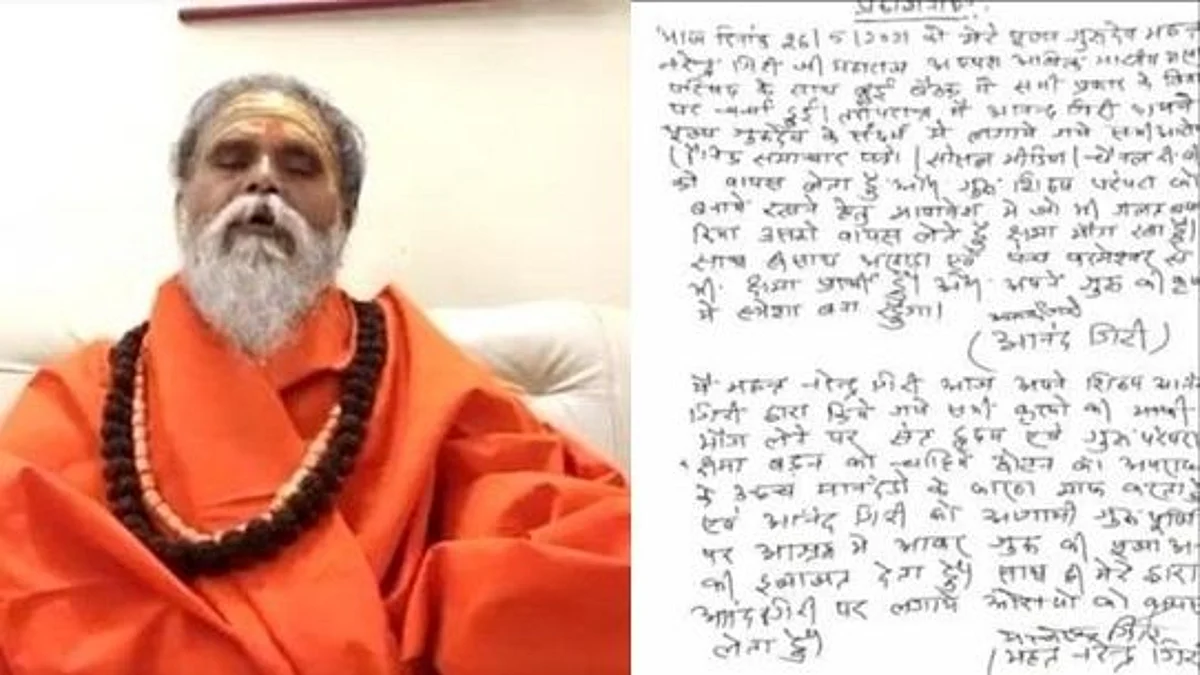 आज दिनांक 26/5/2021 को मेरे पूज्य गुरुदेव महन्त
नरेन्द्र गिरी जी महाराज अध्यक्ष अखिल भारतीय
परिषद के साथ हुई बैठक में सभी प्रकार के
पर चर्चा हुई। तत्पश्चात मैं आनन्द गिरी अपने
पूज्य गुरुदेव के संदर्भ में लगाये गये सभी
समाचार पत्रो। सोसल मीडिया।
को वापस लेता हूँ और गुरु शिष्य परंपरा को
बनाये रखने हेतु भावावेश में जो भी गलत
दिया उसको वापस लेते हुए क्षमा मांग रहा हूँ।
साथ ही साथ अखाड़ा एवं पंच परमेश्वर से
भी क्षमा प्रार्थी हूँ। और अपने गुरु की
में हमेशा बना रहूँगा।
(आनंद गिरी)
मैं महन्त नरेन्द्र गिरी आज अपने शिष्य
गिरी द्वारा किये गये सभी कृत्यो की माफी
माँग लेने पर संत हृदय एवं गुरु परंपरा
क्षमा बड़न को चाहिये छोटन को
के उच्च मानदंडो के कारण माफ करता
एवं आनंद गिरी को आगामी गुरु पूर्णि
पर आश्रम में आकर गुरु की पूजा
की इजाजत देता हूँ। साथ ही मेरे द्वारा
आनंद गिरी पर लगाये को वापस
लेता हूँ।
(महन्त नरेन्द्र गिरी